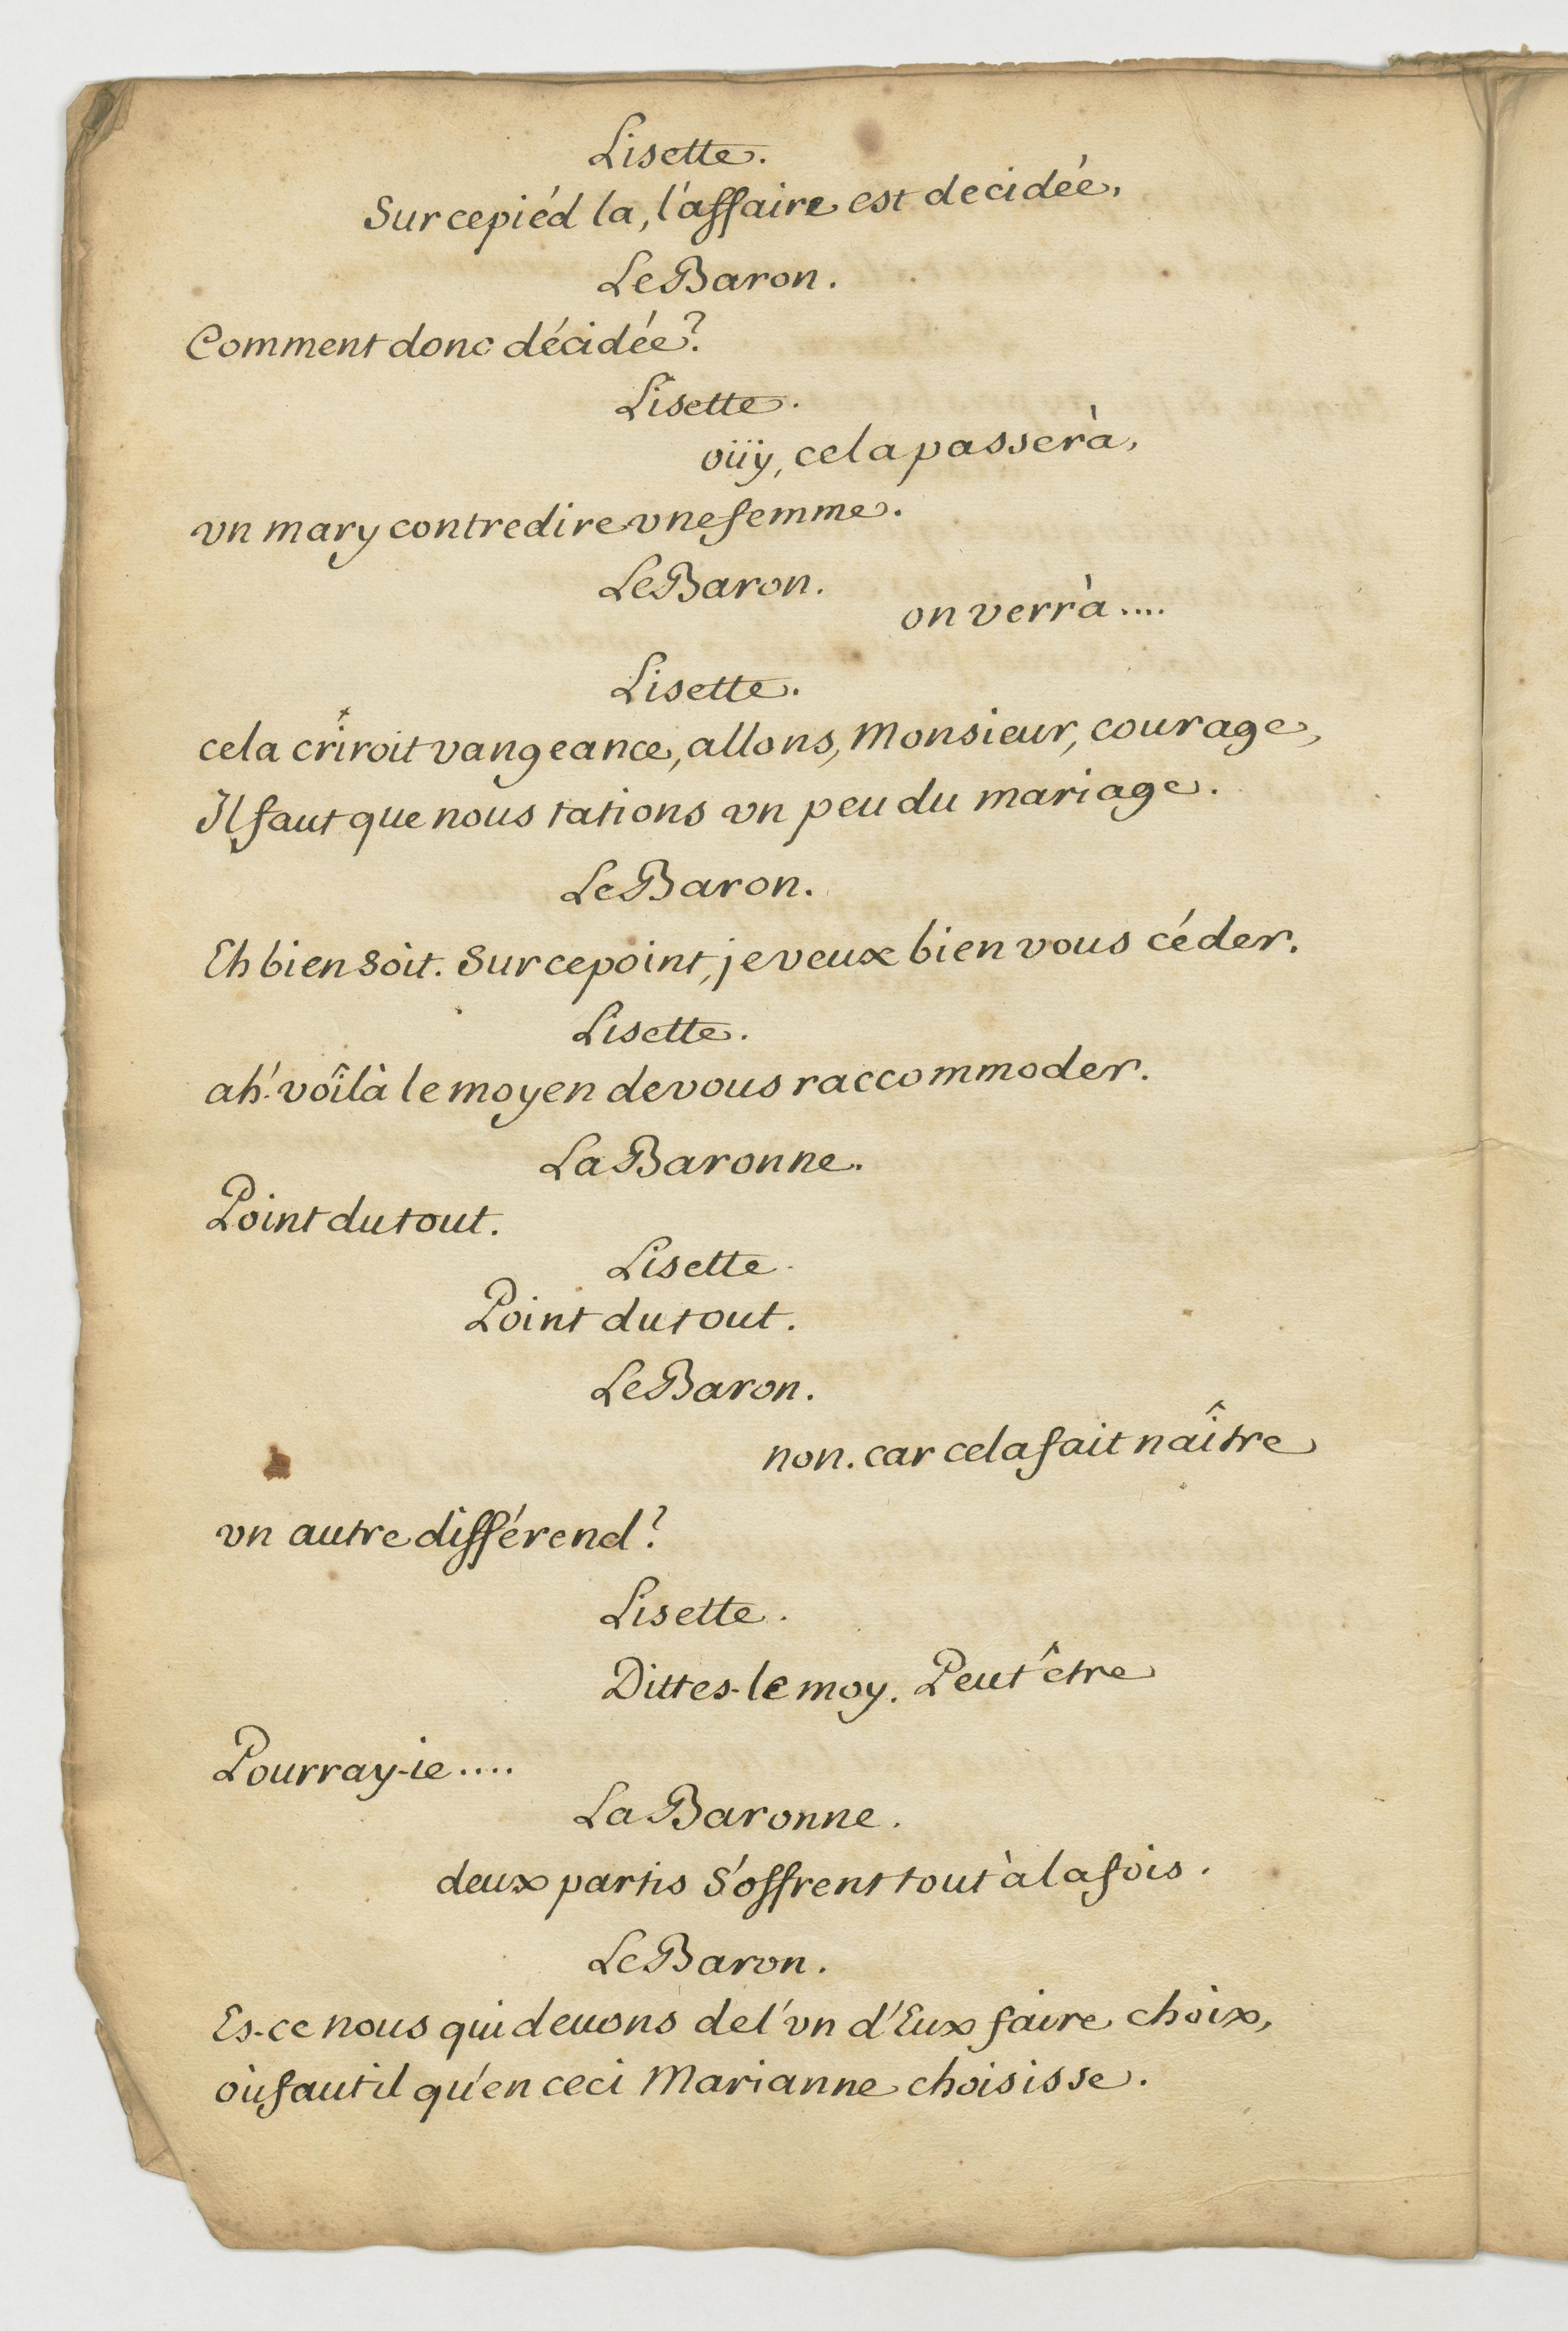 Lisette.
Sur ce piéd la, l'affaire est decidée,
Le Baron.
Comment donc décidée?
Lisette.
oüy, cela passerà,
vn mary contredire vne femme.
Le Baron.
on verrà....
Lisette.
cela criroit vangeance, allons, Monsieur, courage,
Il faut que nous tations vn peu du mariage.
Le Baron.
Eh bien soit. Sur ce point, je veux bien vous céder.
Lisette.
ah! voîlà le moyen de vous raccommoder.
La Baronne.
Point du tout.
Lisette.
Point du tout.
Le Baron.
non. car cela fait naître
vn autre différend?
Lisette.
Dittes-le moy. Peut être
Pourray-ie....
La Baronne.
deux partis s'offrent tout à la fois.
Le Baron.
Es-ce nous qui deuons de l'vn d'Eux faire choix,
où faut il qu'en ceci Marianne choisisse.